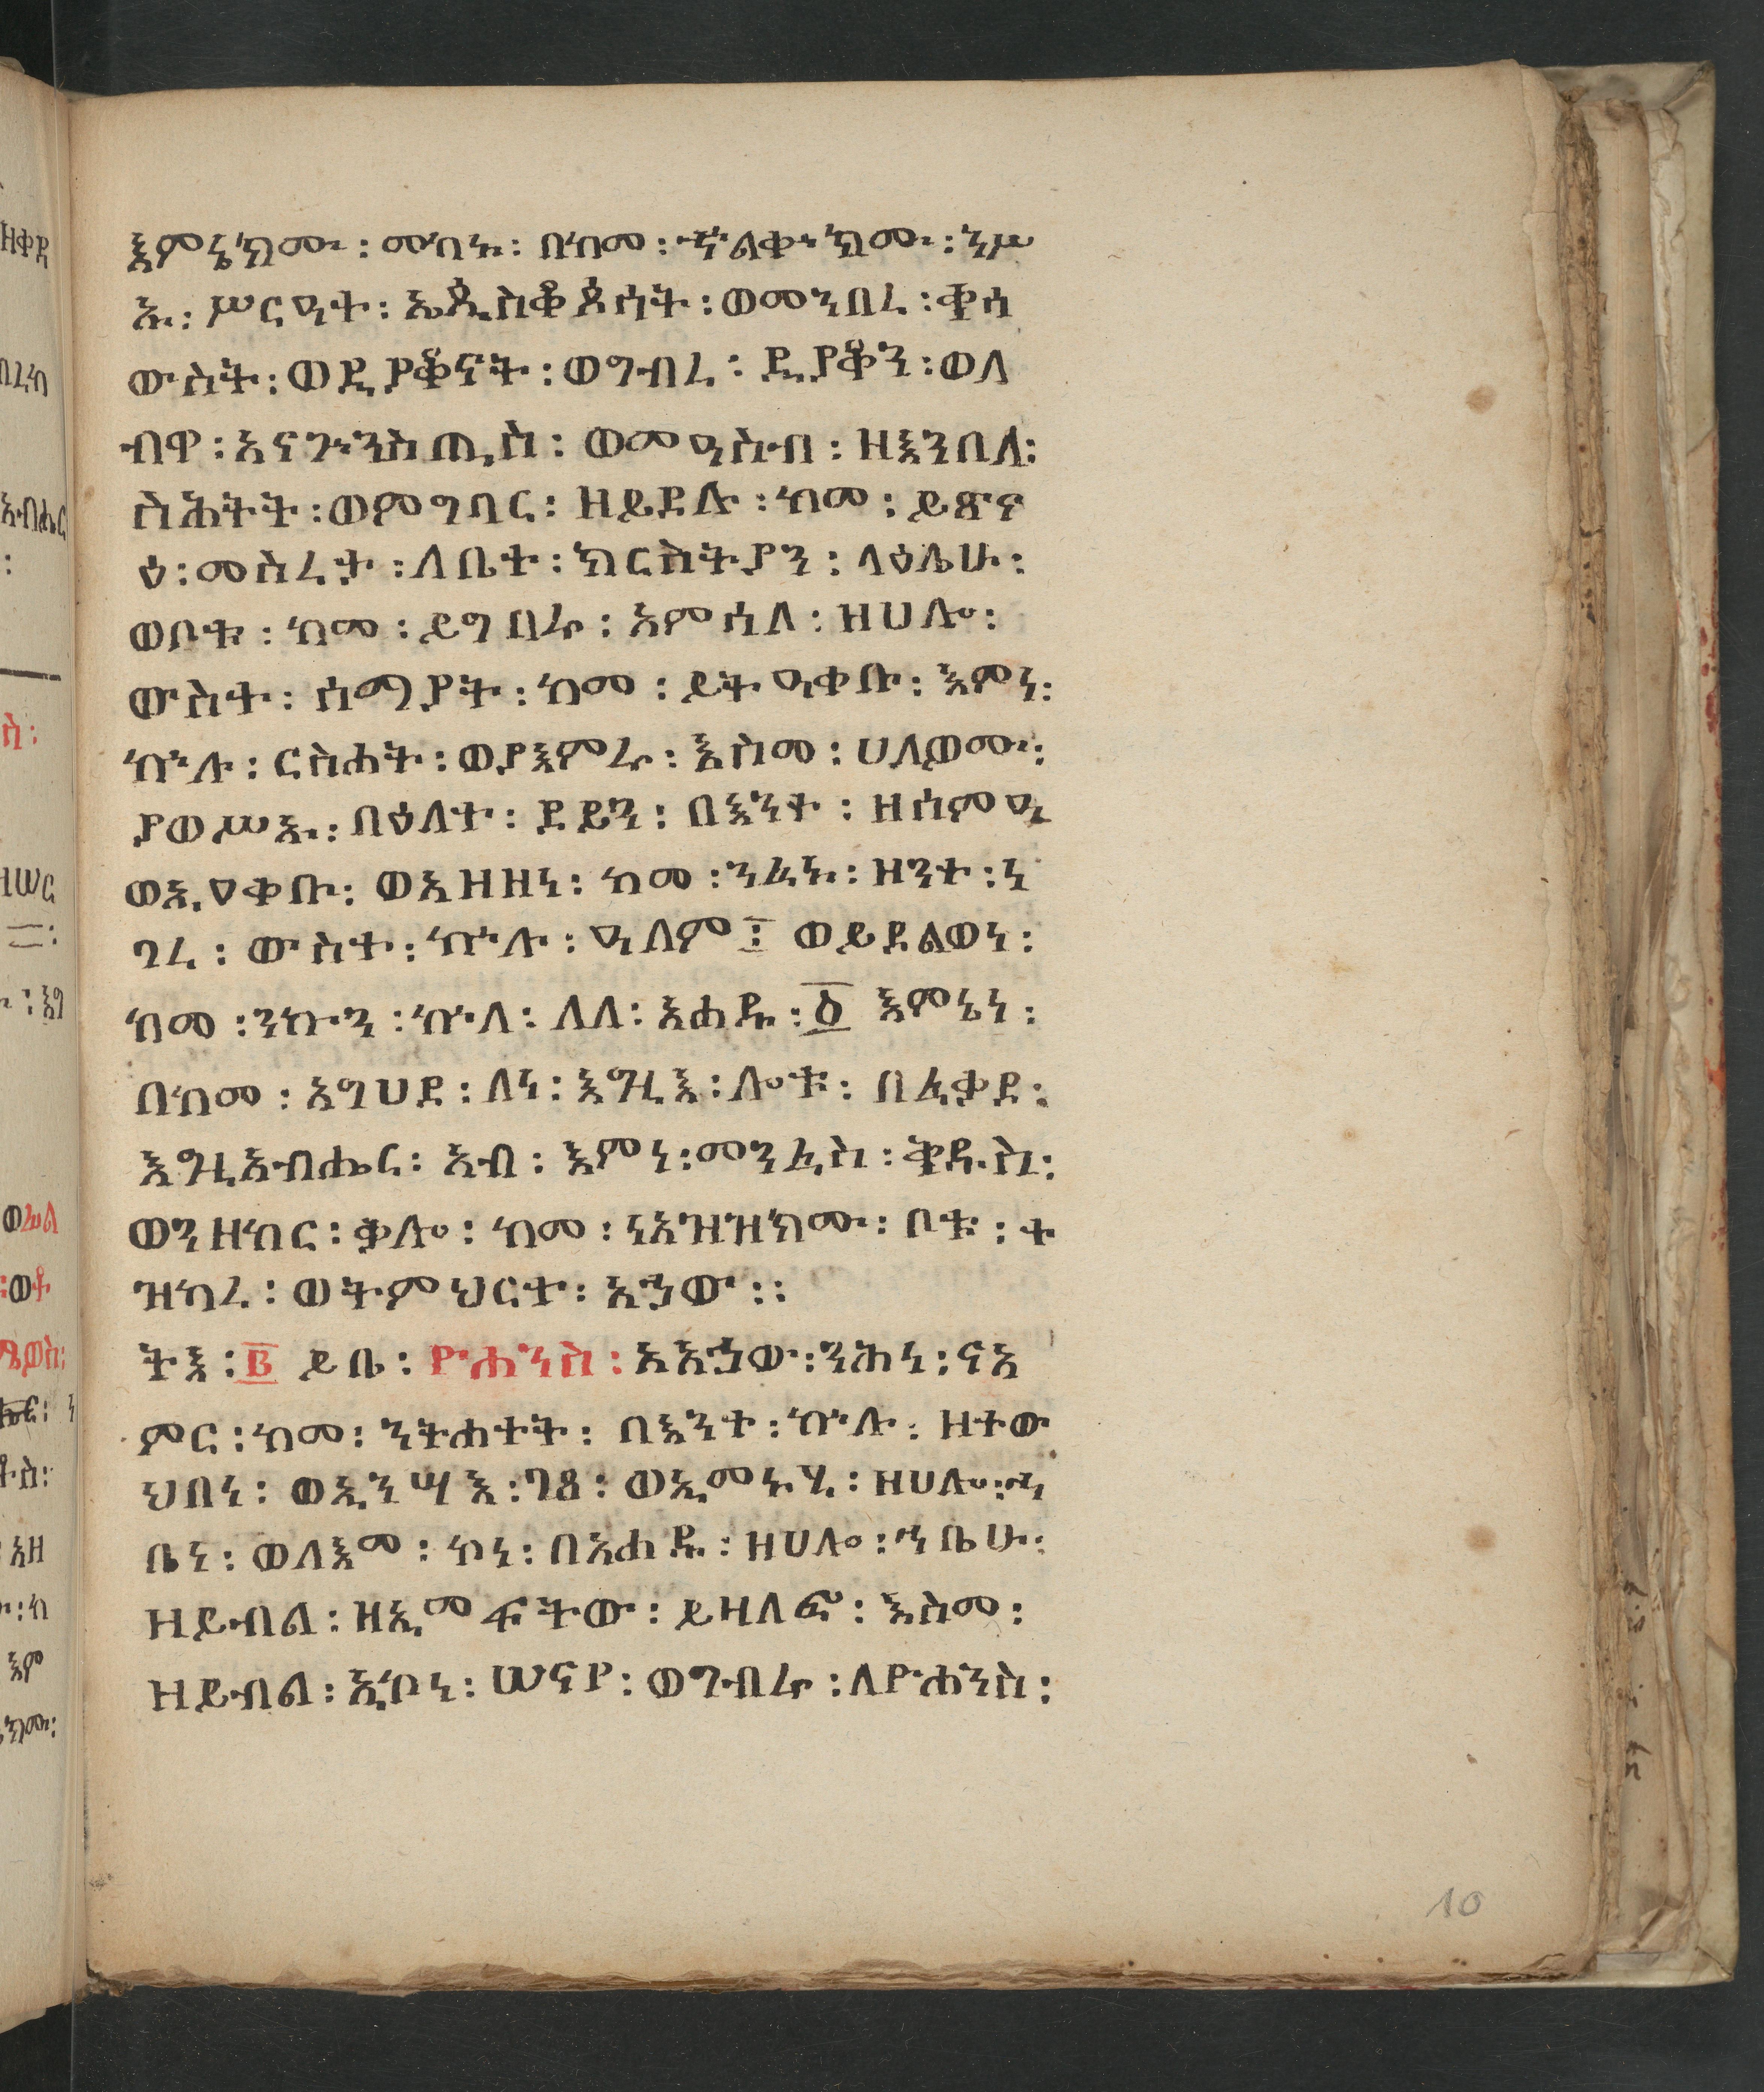 እምኔክሙ ፡ መካኑ ፡ በከመ ፡ ኆልቍክሙ ፡ ንሥ
ኡ ፡ ሥርዓተ ፡ ኤጲስቆጶሳት ፡ ወመንበረ ፡ ቀሳ
ውስት ፡ ወዲያቆናት ፡ ወግብረ ፡ ዲያቆን ፡ ወለ
ብዋ ፡ አናጉንስጢስ ፡ ወመዓስብ ፡ ዘእንበለ ፡
ስሕተት ፡ ወምግባር ፡ ዘይደሉ ፡ ከመ ፡ ይጽና
ዕ ፡ መስረታ ፡ ለቤተ ፡ ክርስትያን ፡ ላዕሌሁ ፡
ወቦቱ ፡ ከመ ፡ ይግበሩ ፡ አምሳለ ፡ ዘሀሎ ፡
ውስተ ፡ ሰማያት ፡ ከመ ፡ ይትዓቀቡ ፡ እምነ ፡
ኵሉ ፡ ርስሐት ፡ ወያእምሩ ፡ እስመ ፡ ሀለወሙ ፡
ያወሥኡ ፡ በዕለተ ፡ ደይን ፡ በእንተ ፡ ዘሰምዓ
ወኢዐቀቡ ፡ ወአዘዘነ ፡ ከመ ፡ ንፈኑ ፡ ዘንተ ፡ ነ
ገረ ፡ ውስተ ፡ ኵሉ ፡ ዓለም ፤ ወይደልወነ ፡
ከመ ፡ ንኩን ፡ ኵለ ፡ ለለ ፡ አሐዱ ፡ ፩ እምኔነ ፡
በከመ ፡ አግሀደ ፡ ለነ ፡ እግዚእ ፡ ሎቱ ፡ በፈቃደ ፡
እግዚአብሔር ፡ አብ ፡ እምነ ፡ መንፈስ ፡ ቅዱስ ፡
ወንዘከር ፡ ቃሎ ፡ ከመ ፡ ነአዝዝክሙ ፡ ቦቱ ፡ ተ
ዝካረ ፡ ወትምህርተ ፡ አኃው ፡፡
ትእ ፡ ፪ ይቤ ፡ ዮሐንስ ፡ አአኃው ፡ ንሕነ ፡ ናአ
ምር ፡ ከመ ፡ ንትሐተት ፡ በእንተ ፡ ኵሉ ፡ ዘተው
ህበነ ፡ ወኢንሣእ ፡ ገጸ ፡ ወኢመኑሂ ፡ ዘሀሎ ፡ ኀ
ቤነ ፡ ወለእመ ፡ ኮነ ፡ በአሐዱ ፡ ዘሀሎ ፡ ኀቤሁ ፡
ዘይብል ፡ ዘኢመፍትው ፡ ይዘለፍ ፡ እስመ ፡
ዘይብል ፡ ኢኮነ ፡ ሠናየ ፡ ወግብሩ ፡ ለዮሐንስ ፡
10